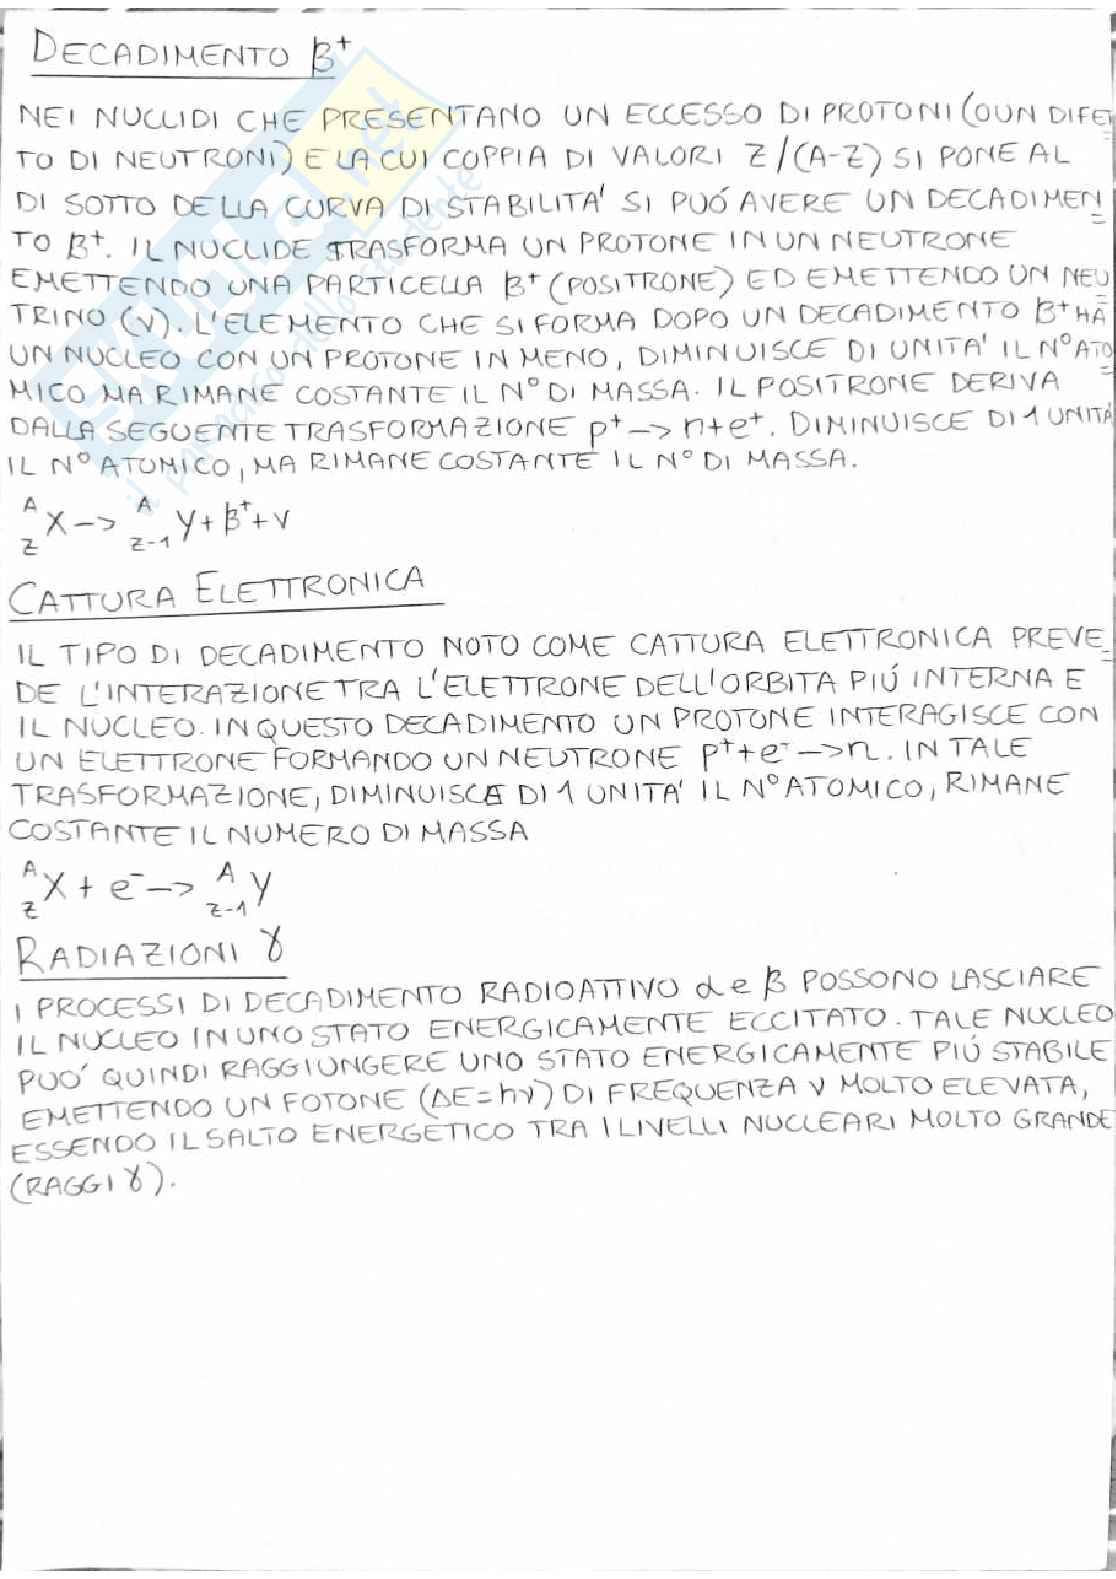 DECADIMENTO β⁺
NEI NUCLIDI CHE PRESENTANO UN ECCESSO DI PROTONI (O UN DIFET
TO DI NEUTRONI) E LA CUI COPPIA DI VALORI Z/(A-Z) SI PONE AL
DI SOTTO DELLA CURVA DI STABILITA' SI PUÓ AVERE UN DECADIMEN
TO β⁺. IL NUCLIDE TRASFORMA UN PROTONE IN UN NEUTRONE
EMETTENDO UNA PARTICELLA β⁺ (POSITRONE) ED EMETTENDO UN NEU
TRINO (ν). L'ELEMENTO CHE SI FORMA DOPO UN DECADIMENTO β⁺ HA
UN NUCLEO CON UN PROTONE IN MENO, DIMINUISCE DI UNITA' IL N° ATO
MICO MA RIMANE COSTANTE IL N° DI MASSA. IL POSITRONE DERIVA
DALLA SEGUENTE TRASFORMAZIONE p⁺ -> n+e⁺. DIMINUISCE DI 1 UNITÀ
IL N° ATOMICO, MA RIMANE COSTANTE IL N° DI MASSA.
ᴬ_Z X -> ᴬ_Z-1 Y + β⁺ + ν
CATTURA ELETTRONICA
IL TIPO DI DECADIMENTO NOTO COME CATTURA ELETTRONICA PREVE
DE L'INTERAZIONE TRA L'ELETTRONE DELL'ORBITA PIÚ INTERNA E
IL NUCLEO. IN QUESTO DECADIMENTO UN PROTONE INTERAGISCE CON
UN ELETTRONE FORMANDO UN NEUTRONE p⁺+e⁻ -> n. IN TALE
TRASFORMAZIONE, DIMINUISCE DI 1 UNITA' IL N° ATOMICO, RIMANE
COSTANTE IL NUMERO DI MASSA
ᴬ_Z X + e⁻ -> ᴬ_Z-1 Y
RADIAZIONI γ
I PROCESSI DI DECADIMENTO RADIOATTIVO α e β POSSONO LASCIARE
IL NUCLEO IN UNO STATO ENERGICAMENTE ECCITATO. TALE NUCLEO
PUO' QUINDI RAGGIUNGERE UNO STATO ENERGICAMENTE PIÚ STABILE
EMETTENDO UN FOTONE (ΔE=hν) DI FREQUENZA ν MOLTO ELEVATA,
ESSENDO IL SALTO ENERGETICO TRA I LIVELLI NUCLEARI MOLTO GRANDE
(RAGGI γ).